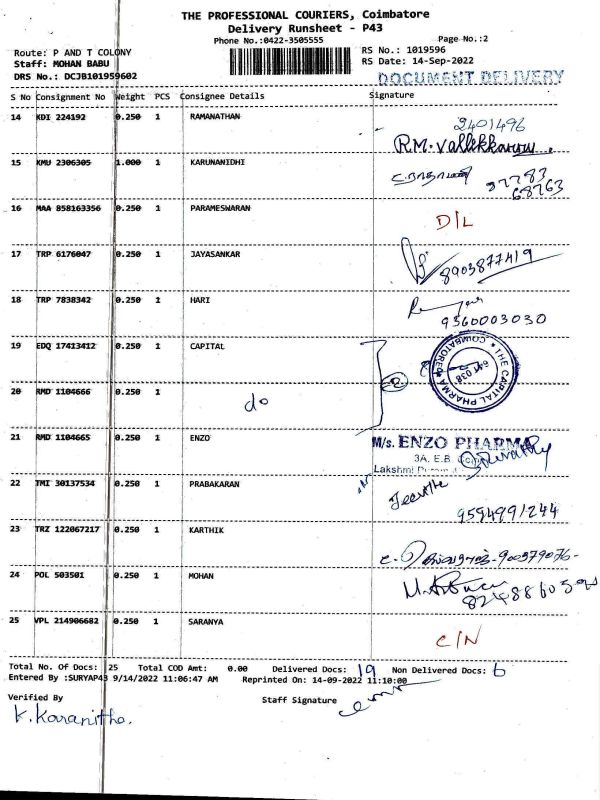 THE PROFESSIONAL COURIERS, Coimbatore
Delivery Runsheet - P43
Phone No.:0422-3505555
Page No.:2
Route: P AND T COLONY
RS No.: 1019596
Staff: MOHAN BABU
RS Date: 14-Sep-2022
DRS No.: DCJB101959602
DOCUMENT DELIVERY
S No Consignment No Weight PCS Consignee Details Signature
14 KDI 224192 0.250 1 RAMANATHAN 2401496
R.M.
15 KMU 2306305 1.000 1 KARUNANIDHI
97783
68763
16 MAA 858163356 0.250 1 PARAMESWARAN D/L
17 TRP 6176047 0.250 1 JAYASANKAR 8903877419
18 TRP 7838342 0.250 1 HARI
9360003030
19 EDQ 17413412 0.250 1 CAPITAL
THE CAPITAL PHARMA COIMBATORE
641 038
20 RMD 1104666 0.250 1 do
21 RMD 1104665 0.250 1 ENZO M/s. ENZO PHARMA
3A, E.B.
Lakshmi
Revathy
22 TMI 30137534 0.250 1 PRABAKARAN
9594991244
23 TRZ 122067217 0.250 1 KARTHIK
24 POL 503501 0.250 1 MOHAN
25 VPL 214906682 0.250 1 SARANYA C/N
Total No. Of Docs: 25 Total COD Amt: 0.00 Delivered Docs: 19 Non Delivered Docs: 6
Entered By :SURYAP43 9/14/2022 11:06:47 AM Reprinted On: 14-09-2022 11:10:00
Verified By Staff Signature
K. Karanitha.